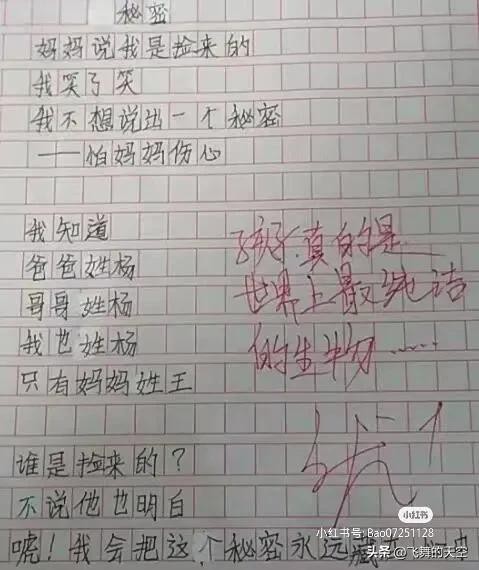 秘密
妈妈说我是捡来的
我笑了笑
我不想说出一个秘密
——怕妈妈伤心
我知道
爸爸姓杨
哥哥姓杨
我也姓杨
只有妈妈姓王
孩子,真的是
世界上最纯洁
的生物……
谁是捡来的?
不说他也明白
嘘!我会把这个秘密永远藏
小红书
小红书号:Bao07251128
头条 @飞舞的天空